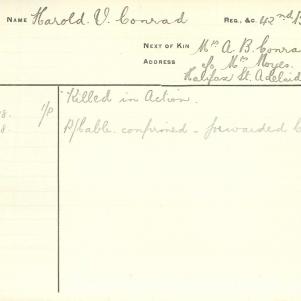 NAME Harold V. Conrad REG., &C. 42nd B
NEXT OF KIN Mrs A. B. Conra
ADDRESS c/o Mrs Moyes.
Halifax St. Adelaid
Killed in Action.
8. 1/P
8 P/Cable confirmed - forwarded